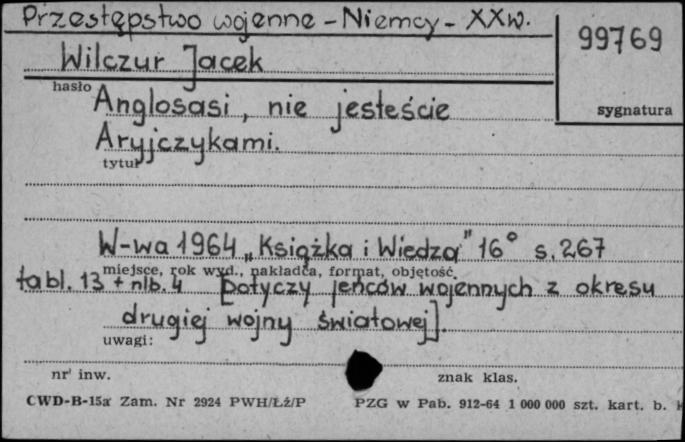 Przestępstwo wojenne - Niemcy - XX w.
99769
Wilczur Jacek
hasło
sygnatura
Anglosasi, nie jesteście
Aryjczykami.
tytuł
W-wa 1964 „Książka i Wiedza" 16° s. 267
miejsce, rok wyd., nakładca, format, objętość.
tabl. 13 + nlb. 4 [Dotyczy jeńców wojennych z okresu
drugiej wojny światowej].
uwagi:
nr inw.
znak klas.
CWD-B-15a Zam. Nr 2924 PWH/Łź/P
PZG w Pab. 912-64 1 000 000 szt. kart. b.